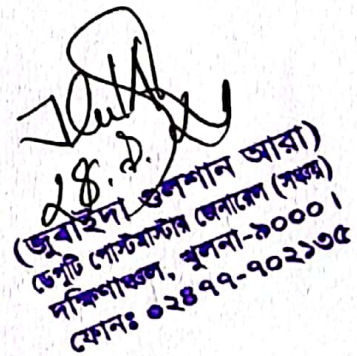 (জুবাইদা গুলশান আরা)
ডেপুটি পোস্টমাস্টার জেনারেল (সঞ্চয়)
দক্ষিণাঞ্চল, খুলনা-৯০০০।
ফোনঃ ০২৪৭৭-৭০২১৩৫